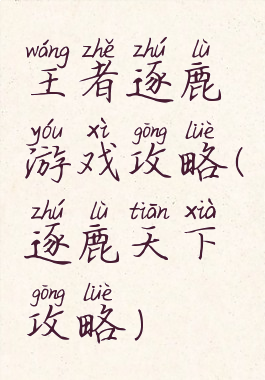 wáng zhě zhú lù
王者逐鹿
yóu xì gōng lüè
游戏攻略(
zhú lù tiān xià
逐鹿天下
gōng lüè
攻略)